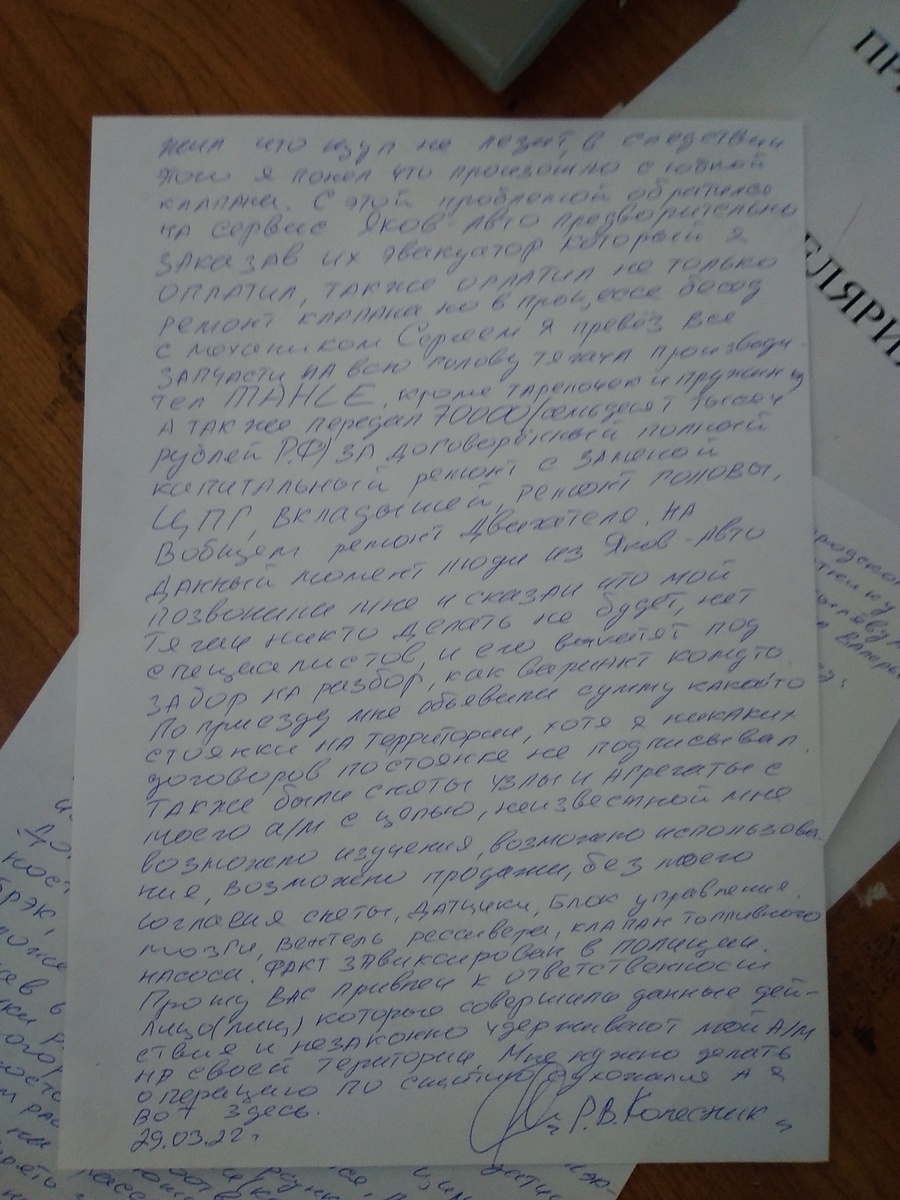 жил что щуп не лезит, в следствии
того я понел что произошло с юбкой
клапана. С этой проблемой обратился
на сервис Яков-Авто предворительно
заказав их эвакуатор который я
оплатил, также оплатил не только
ремонт клапана но в процессе бесед
с механиком Сергеем я превёз все
запчасти на всю голову тягача производи-
тел MAHLE, кроме тарелочек и пружин
а так же передал 70000/семьдесят тысяч
рублей Р.Ф/ за договорённый полный
капитальный ремонт с заменой
ЦПГ, вкладышей, ремонт головы,
Вобщем ремонт двигателя. На
данный момент люди из Яков-Авто
позвонили мне и сказали что мой
тягач никто делать не будет, нет
специалистов, и его выкатят под
забор на разбор, как вариант комуто
По приезду мне обьявили сумму какойто
стоянки на территории, хотя я никаких
договоров постоянке не подписывал.
также были сняты узлы и агрегаты с
моего а/м с целью, неизвестной мне
возможно изучения, возможно использова
ние, возможно продажи, без моего
согласия сняты, датчики, блок управления
мозги, вентель рессивера, клапан топливного
насоса. Факт зафиксирован в полиции.
Прошу вас привлеч к ответственности
лицо(лиц) которые совершили данные дей-
ствия и незаконно удерживают мой а/м
на своей територии. Мне нужно делать
операцию по снятию а я
вот здесь.
29.03.22г. Р.В.Колесник
ПР
ЕЛЯРИ